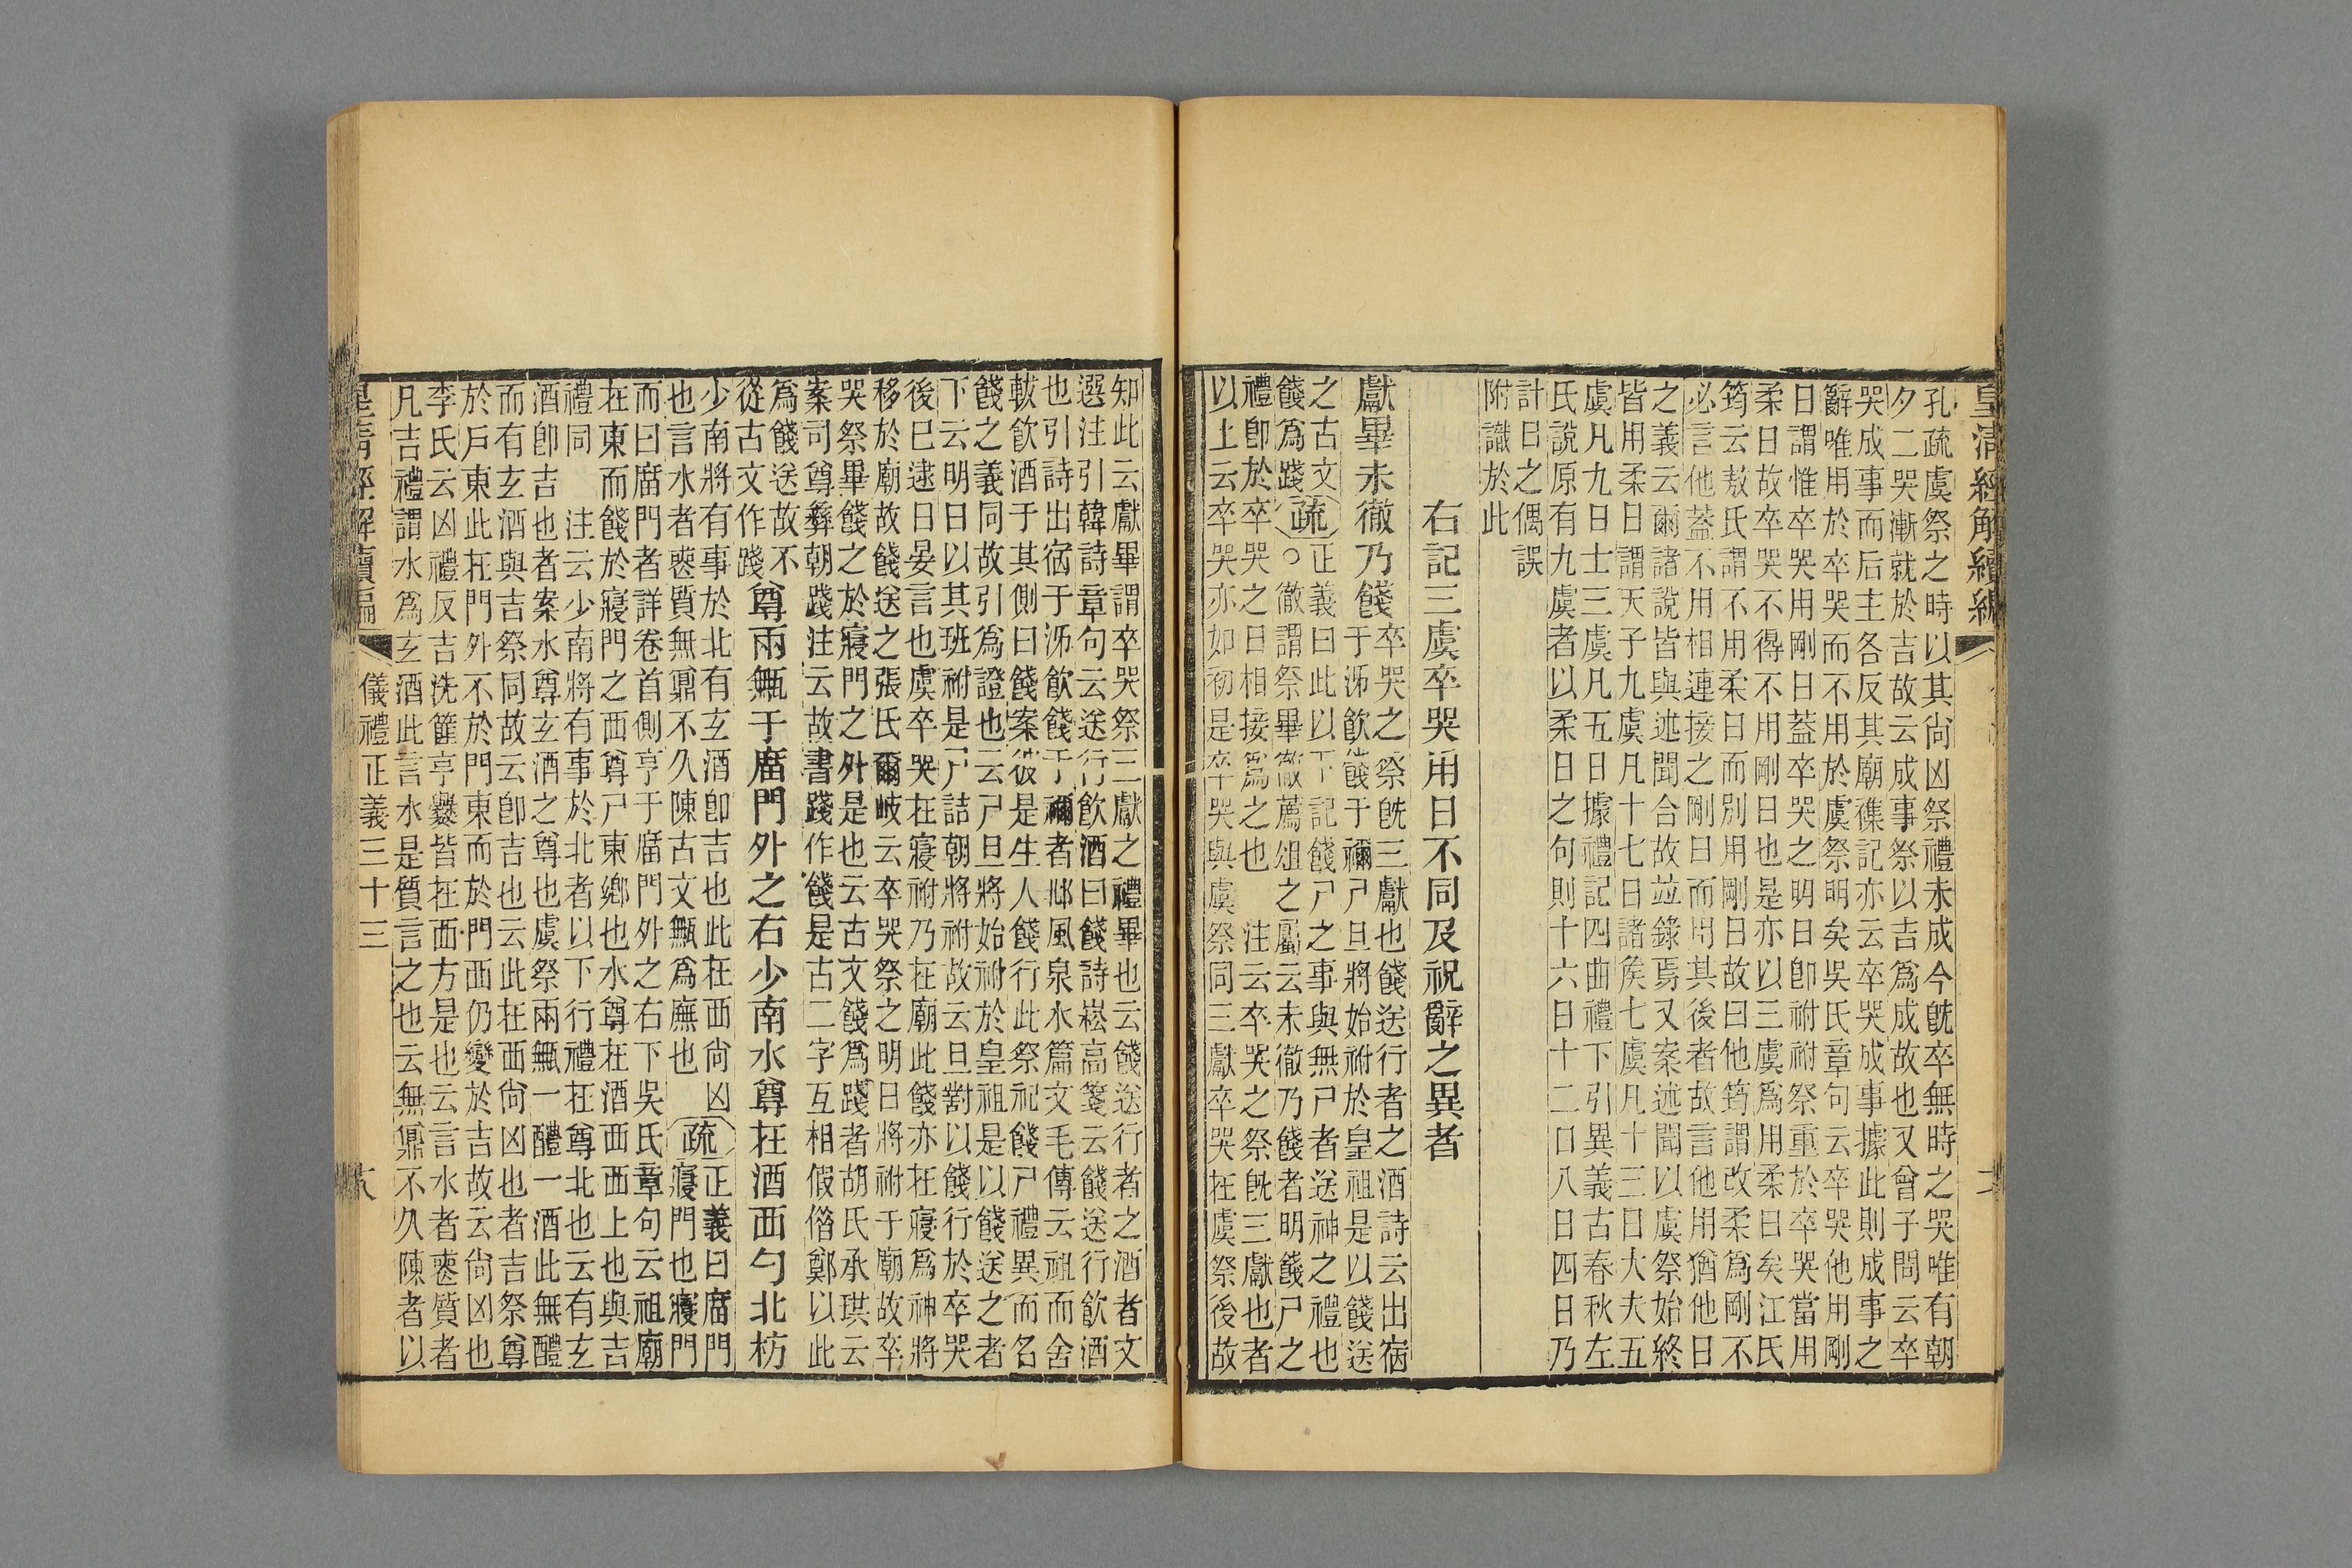 皇清經解續編
孔疏虞祭之時以其尙凶祭禮未成今旣卒無時之哭唯有朝
夕二哭漸就於吉故云成事祭以吉爲成故也又曾子問云卒
哭成事而后主各反其廟襍記亦云卒哭成事據此則成事之
辭唯用於卒哭而不用於虞祭明矣吳氏章句云卒哭他用剛
日謂惟卒哭用剛日蓋卒哭之明日卽祔祔祭重於卒哭當用
柔日故卒哭不得不用剛日也是亦以三虞爲用柔日矣江氏
筠云敖氏謂不用柔日而別用剛日故曰他筠謂改柔爲剛不
必言他蓋不用相連接之剛日而用其後者故言他用猶他日
之義云爾諸說皆與述聞合故竝錄焉又案述聞以虞祭始終
皆用柔日謂天子九虞凡十七日諸矦七虞凡十三日大夫五
虞凡九日士三虞凡五日據禮記四曲禮下引異義古春秋左
氏說原有九虞者以柔日之句則十六日十二日八日四日乃
計日之偶誤
附識於此
右記三虞卒哭用日不同及祝辭之異者
獻畢未徹乃餞
卒哭之祭旣三獻也餞送行者之酒詩云出宿
于泲飮餞于禰尸旦將始祔於皇祖是以餞送
之古文
餞爲踐
疏
正義曰此以下記餞尸之事與無尸者送神之禮也
○徹謂祭畢徹薦俎之屬云未徹乃餞者明餞尸之
禮卽於卒哭之日相接爲之也　注云卒哭之祭旣三獻也者
以上云卒哭亦如初是卒哭與虞祭同三獻卒哭在虞祭後故
知此云獻畢謂卒哭祭三獻之禮畢也云餞送行者之酒者文
選注引韓詩章句云送行飮酒曰餞詩崧高箋云餞送行飮酒
也引詩出宿于泲飮餞于禰者邶風泉水篇文毛傳云祖而舍
軷飮酒于其側曰餞案彼是生人餞行此祭祀餞尸禮異而名
餞之義同故引爲證也云尸旦將始祔於皇祖是以餞送之者
下云明日以其班祔是尸詰朝將祔故云旦對以餞行於卒哭
後巳逮日晏言也虞卒哭在寢祔乃在廟此餞亦在寢爲神將
移於廟故餞送之張氏爾岐云卒哭祭之明日將祔于廟故卒
哭祭畢餞之於寢門之外是也云古文餞爲踐者胡氏承珙云
案司尊彝朝踐注云故書踐作餞是古二字互相假借鄭以此
爲餞送故不
從古文作踐
尊兩甒于廟門外之右少南水尊在酒西勺北枋
少南將有事於北有玄酒卽吉也此在西尙凶
也言水者喪質無鼏不久陳古文甒爲廡也
疏
正義曰廟門
寢門也寢門
而曰廟門者詳卷首側亨于廟門外之右下吳氏章句云祖廟
在東而餞於寢門之西尊尸東鄉也水尊在酒西西上也與吉
禮同　注云少南將有事於北者以下行禮在尊北也云有玄
酒卽吉也者案水尊玄酒之尊也虞祭兩甒一醴一酒此無醴
而有玄酒與吉祭同故云卽吉也云此在西尙凶也者吉祭尊
於戶東此在門外不於門東而於門西仍變於吉故云尙凶也
李氏云凶禮反吉洗篚亨爨皆在面方是也云言水者喪質者
凡吉禮謂水爲玄酒此言水是質言之也云無鼏不久陳者以
皇清經解續編
儀禮正義三十三